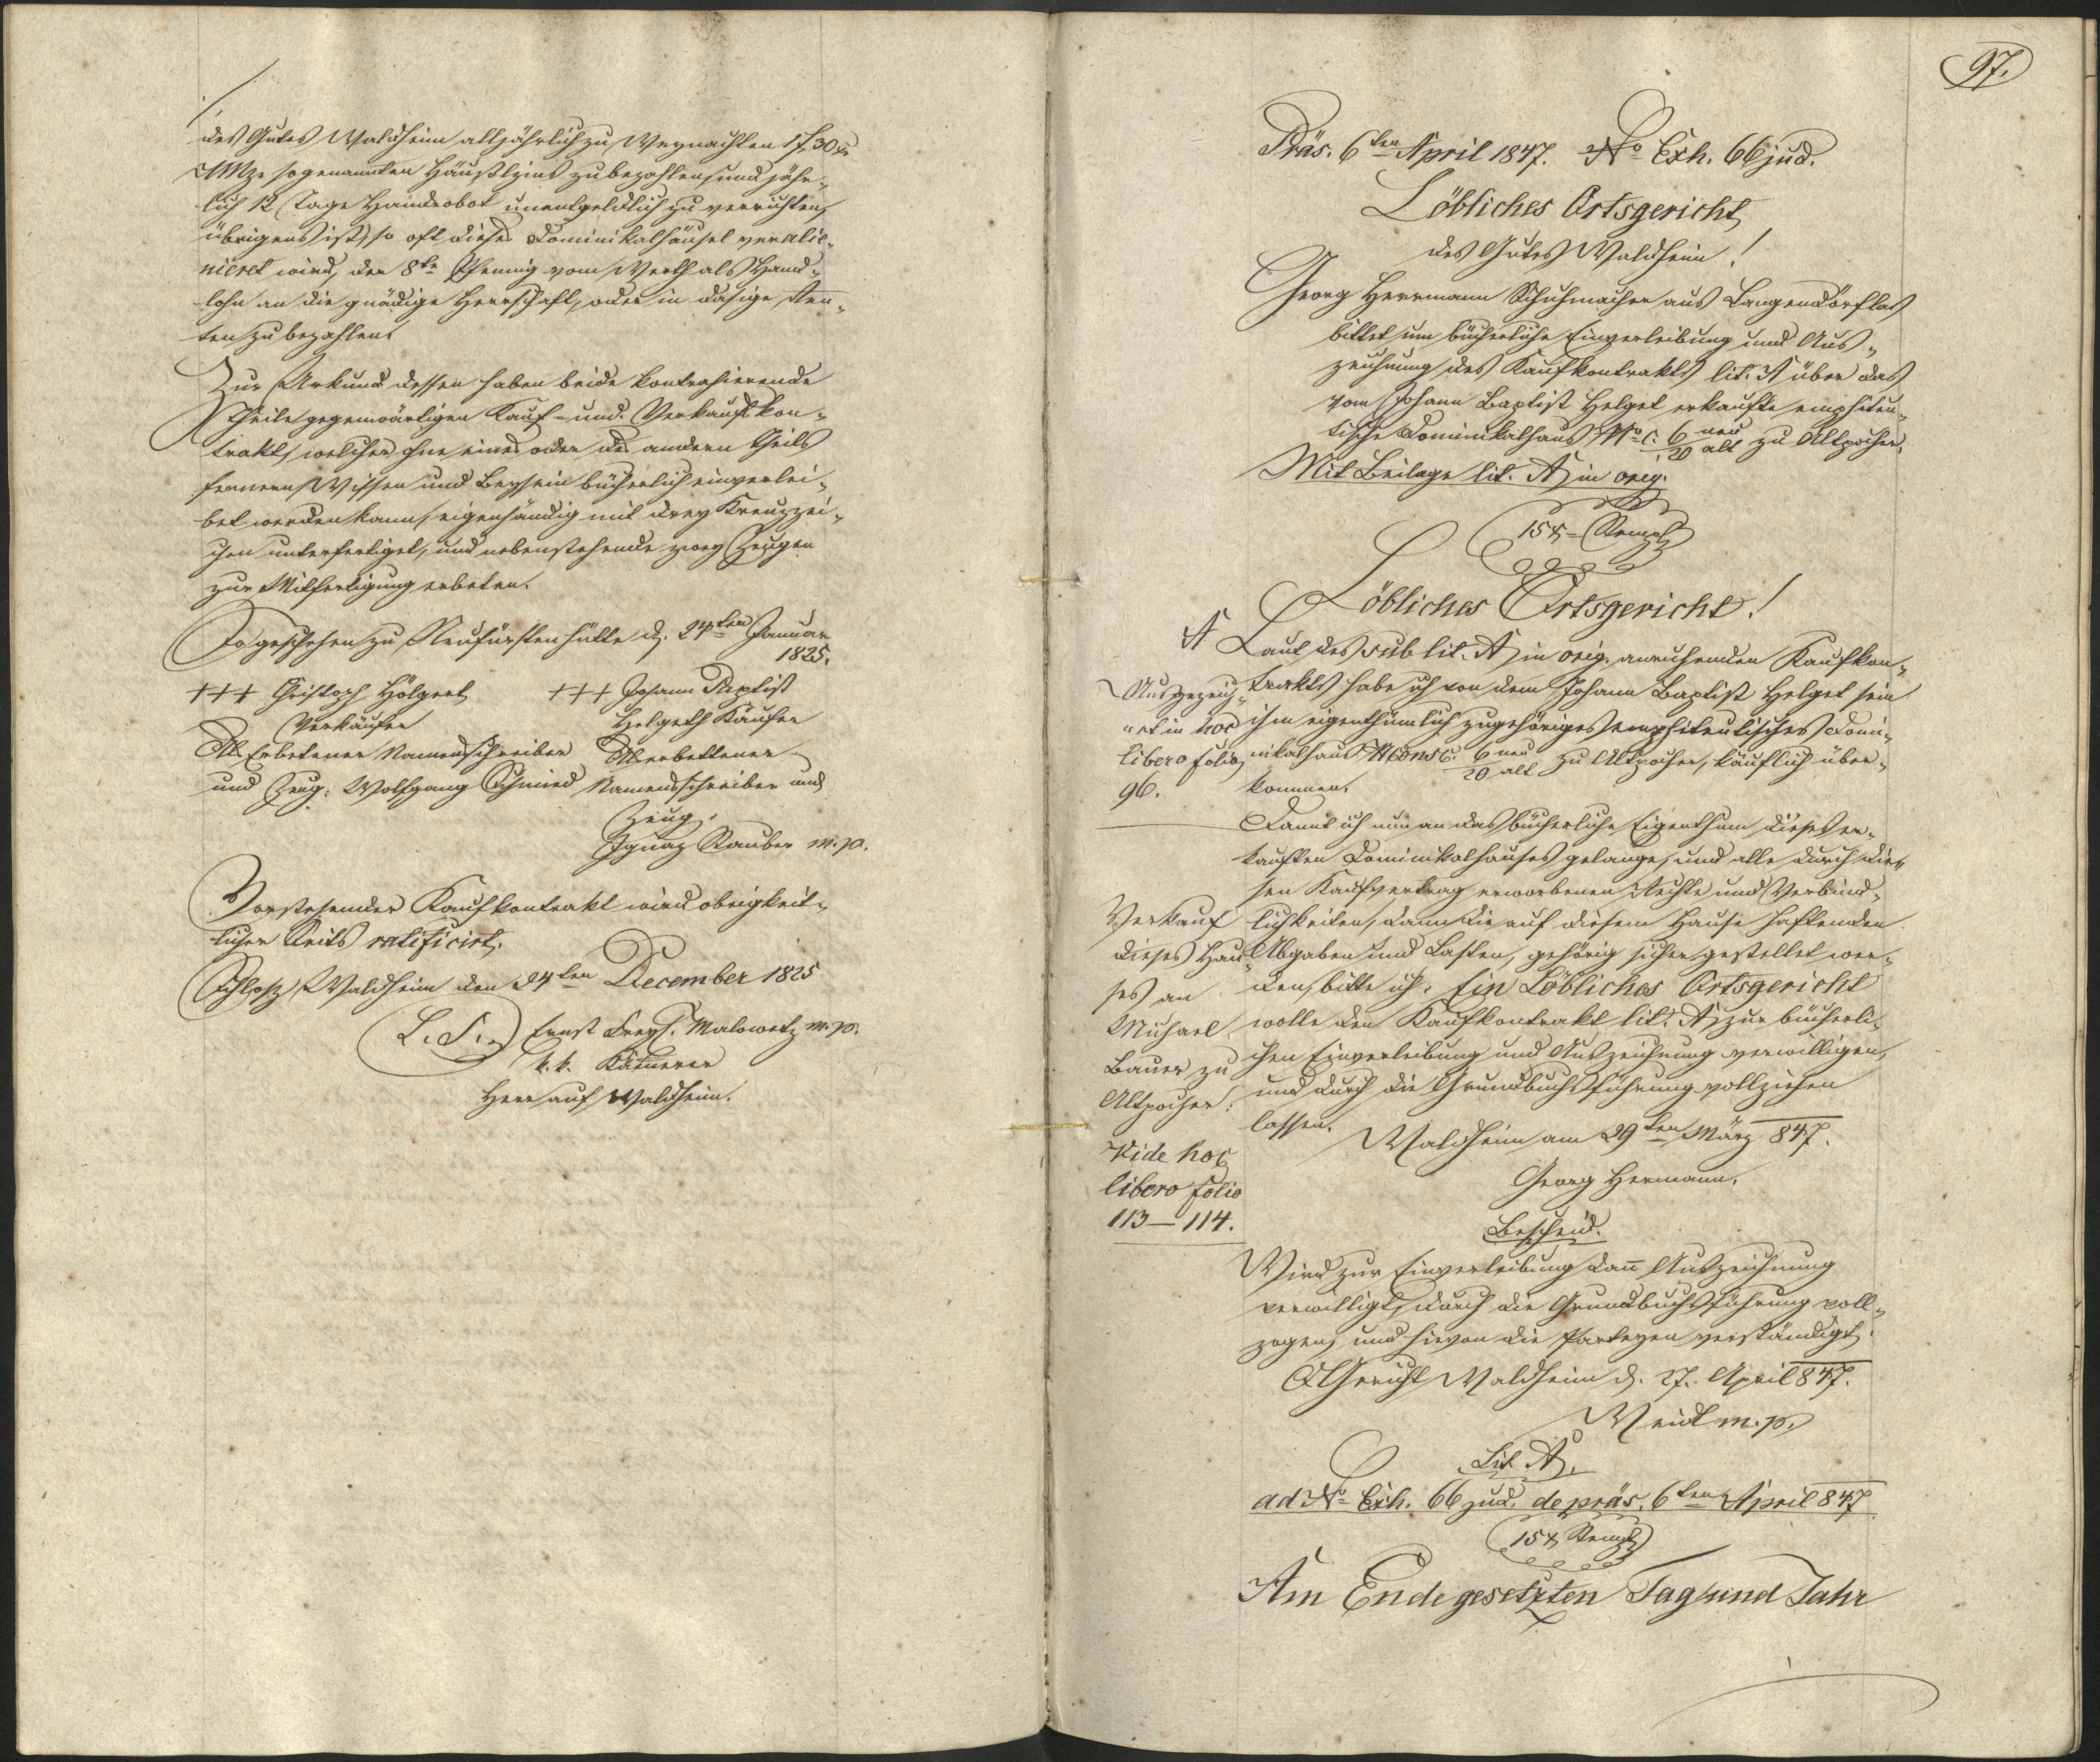 des Gutes Waldheim alljährlich zu Weynachten 1 f 30 xr
CMze sogenannten Häußlzins zu bezahlen, und jähr„
lich 12 Tage Handrobot unentgeldlich zu verrichten,
übrigens ist, so oft dieses Dominikalhäusel veralie„
nieret wird, der 8te Pfennig vom Werth als Hand„
lohn an die gnädige Herrschaft, oder in dasige Ren„
ten zu bezahlen.
Zur Urkund dessen haben beide kontrahierende
Theile gegenwärtigen Kauf- und Verkaufkon„
trakt, welcher ohne eines oder des andern Theils
fernern Wissen und Beysein bücherlich einverlei„
bet werden kann, eigenhändig mit drey Kreuzzei„
chen unterfertiget, und nebenstehende zwey Zeugen
zur Mitfertigung erbeten.
So geschehen zu Neufürstenhütte d. 24ten Januar
1825.
+++ Christoph Hölgert
Verkäufer
Erbetener Namensschreiber
und Zeug. Wolfgang Schmied
+++ Johann Baptist
Helgeth Käufer
erbettener
Namensschreiber und
Zeug.
Ignaz Rauber m. p.
Vorstehender Kaufkontrakt wird obrigkeit„
licher Seits ratificirt.
Schloß Waldheim den 24ten December 1825
L. S. Ernst Freyh. Malowetz m. p.
k. k. Kämerer
Herr auf Waldheim.
97.
Präs. 6ten April 1847. No Exh. 66 jud.
Löbliches Ortsgericht
des Gutes Waldheim!
Georg Herrmann Schuhmacher aus Langendörflas
bittet um bücherliche Einverleibung und Aus„
zeichnung des Kaufkontrakts lit. A über das
vom Johann Baptist Helget erkaufte emphiteu„
tische Dominikalhaus No C. 6 neu / 20 alt zu Altpocher.
Mit Beilage lit. A in orig.
15 x Stempl
Löbliches Ortsgericht!
A Laut des sub lit. A in orig. anruhenden Kaufkon„
trakts habe ich von dem Johann Baptist Helget sein
ihm eigenthümlich zugehöriges emphiteutisches Domi„
nikalhaus N Consc. 6 neu / 20 alt zu Altpocher, käuflich über„
kommen.
Ausgezeich„
net in hoc
libero folio
96.
Damit ich nun an das bücherliche Eigenthum dieses er„
kauften Dominikalhauses gelange, und alle durch die„
sen Kaufvertrag erworbenen Rechte und Verbind„
lichkeiten, dann die auf diesem Hause haftenden
Abgaben und Lasten, gehörig sicher gestellet wer„
den, bitte ich: Ein Löbliches Ortsgericht
wolle den Kaufkontrakt lit. A, zur bücherli„
chen Einverleibung und Auszeichnung verwilligen,
und durch die Grundbuchsführung vollziehen
lassen.
Verkauf
dieses Hau„
ses an
Michael
Bauer zu
Altpocher:
Vide hoc
libero folio
113 — 114.
Waldheim am 29ten März 847.
Georg Hermann.
Bescheid.
Wird zur Einverleibung dann Auszeichnung
verwilligt, durch die Grundbuchsführung voll„
zogen, und hievon die Parteyen verständigt.
OGericht Waldheim d. 27. April 847.
Weidl m. p.
Lit A.
ad No Exh. 66 jud. de präs. 6ten April 847
15 x Stempl
Am Ende gesetzten Tag und Jahr